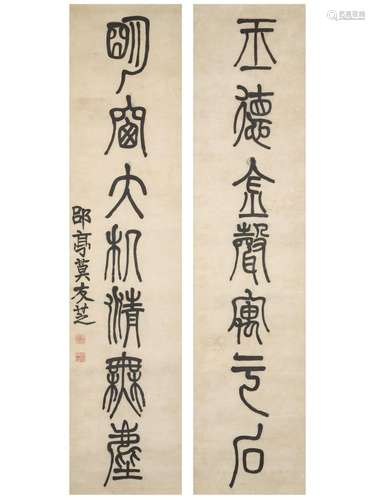 玉德金聲寓于石
明窗大机清無塵
郘亭莫友芝